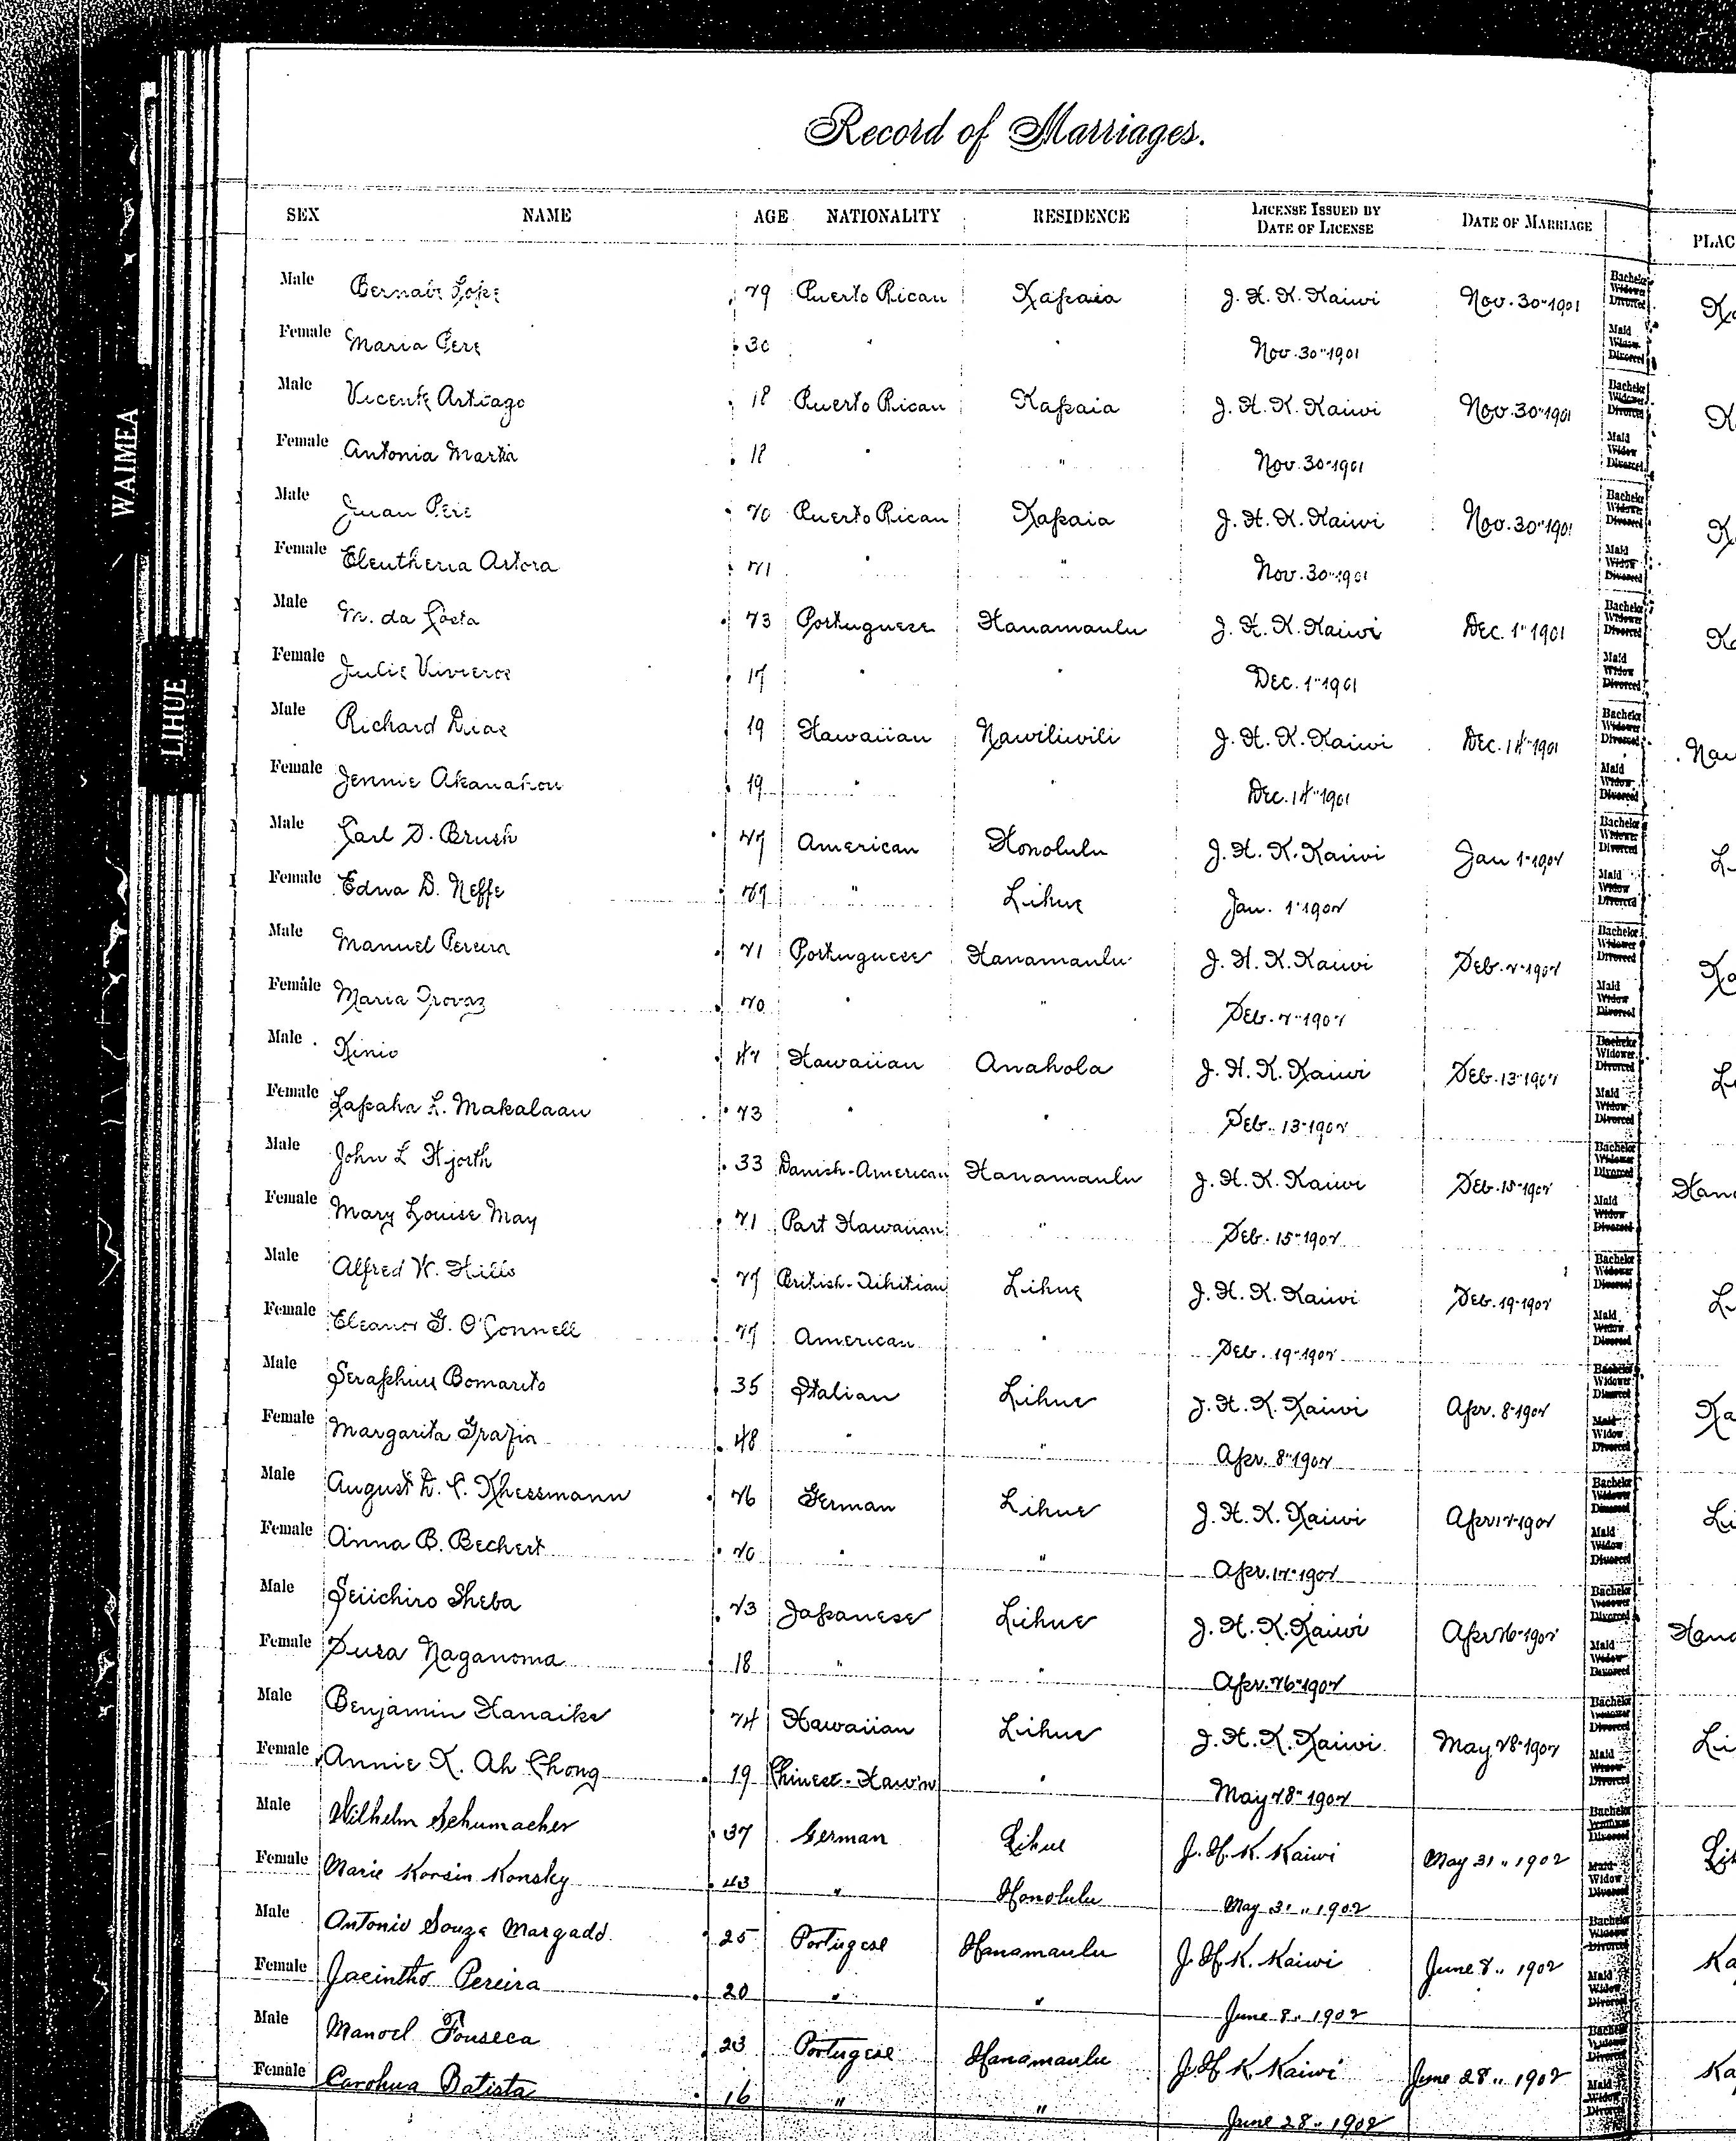 WAIMEA
LIHUE
Record of Marriages.
SEX NAME AGE NATIONALITY RESIDENCE LICENSE ISSUED BY DATE OF LICENSE DATE OF MARRIAGE PLAC
Male Bernabe Lope 29 Puerto Rican Kapaia J. H. K. Kaiwi Nov. 30" 1901 Bachelor Widower Divorced
Female Maria Pere 30 " " Nov. 30" 1901 Maid Widow Divorced
Male Vicente Artiago 18 Puerto Rican Kapaia J. H. K. Kaiwi Nov. 30" 1901 Bachelor Widower Divorced
Female Antonia Martia 18 " " Nov. 30" 1901 Maid Widow Divorced
Male Juan Pere 20 Puerto Rican Kapaia J. H. K. Kaiwi Nov. 30" 1901 Bachelor Widower Divorced
Female Eleutheria Artora 21 " " Nov. 30" 1901 Maid Widow Divorced
Male M. da Costa 23 Portuguese Hanamaulu J. H. K. Kaiwi Dec. 1" 1901 Bachelor Widower Divorced
Female Julie Vivieros 17 " " Dec. 1" 1901 Maid Widow Divorced
Male Richard Dias 19 Hawaiian Nawiliwili J. H. K. Kaiwi Dec. 14" 1901 Bachelor Widower Divorced Naw
Female Jennie Akanahou 19 " " Dec. 14" 1901 Maid Widow Divorced
Male Carl D. Brush 27 American Honolulu J. H. K. Kaiwi Jan 1" 1902 Bachelor Widower Divorced
Female Edna D. Neffe 27 " Lihue Jan. 1" 1902 Maid Widow Divorced
Male Manuel Pereira 21 Portuguese Hanamaulu J. H. K. Kaiwi Feb. 2" 1902 Bachelor Widower Divorced
Female Maria Trovaz 20 " " Feb. 2" 1902 Maid Widow Divorced
Male Kinio 42 Hawaiian Anahola J. H. K. Kaiwi Feb. 13" 1902 Bachelor Widower Divorced
Female Lapaha L. Makalaau 23 " " Feb. 13" 1902 Maid Widow Divorced
Male John L Hjorth 33 Danish-American Hanamaulu J. H. K. Kaiwi Feb. 15" 1902 Bachelor Widower Divorced Hana
Female Mary Louise May 21 Part Hawaiian " Feb. 15" 1902 Maid Widow Divorced
Male Alfred W. Hills 27 British-Tihitian Lihue J. H. K. Kaiwi Feb. 19" 1902 Bachelor Widower Divorced
Female Eleanor G. O'Connell 27 American " Feb. 19" 1902 Maid Widow Divorced
Male Seraphine Bomarito 35 Italian Lihue J. H. K. Kaiwi Apr. 8" 1902 Bachelor Widower Divorced
Female Margarita Grazia 48 " " Apr. 8" 1902 Maid Widow Divorced
Male August D. C. Khessmann 26 German Lihue J. H. K. Kaiwi Apr 12" 1902 Bachelor Widower Divorced
Female Anna B. Bechert 20 " " Apr. 12" 1902 Maid Widow Divorced
Male Seiichiro Sheba 23 Japanese Lihue J. H. K. Kaiwi Apr 26" 1902 Bachelor Widower Divorced Hana
Female Fusa Naganoma 18 " " Apr. 26" 1902 Maid Widow Divorced
Male Benjamin Hanaike 24 Hawaiian Lihue J. H. K. Kaiwi May 28" 1902 Bachelor Widower Divorced
Female Annie K. Ah Chong 19 Chinese-Haw'n " May 28" 1902 Maid Widow Divorced
Male Wilhelm Schumacher 37 German Lihue J. H. K. Kaiwi May 31" 1902 Bachelor Widower Divorced
Female Marie Korsin Konsky 43 " Honolulu May 31" 1902 Maid Widow Divorced
Male Antonio Souza Margado 25 Portugese Hanamaulu J. H. K. Kaiwi June 8" 1902 Bachelor Widower Divorced
Female Jacintho Pereira 20 " " June 8" 1902 Maid Widow Divorced
Male Manoel Fonseca 23 Portugese Hanamaulu J. H. K. Kaiwi June 28" 1902 Bachelor Widower Divorced
Female Carohua Batista 16 " " June 28" 1902 Maid Widow Divorced